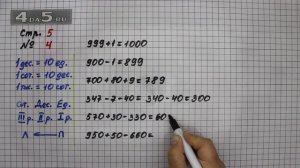 4DA5.RU
Стр. 5
№ 4
1 дес. = 10 ед.
1 сот. = 10 дес.
1 тыс. = 10 сот.
Сот. Дес. Ед.
III р. II р. I р.
Л ← П
999+1=1000
900-1=899
700+80+9=789
347-7-40=340-40=300
570+30-330=60
950+50-660=